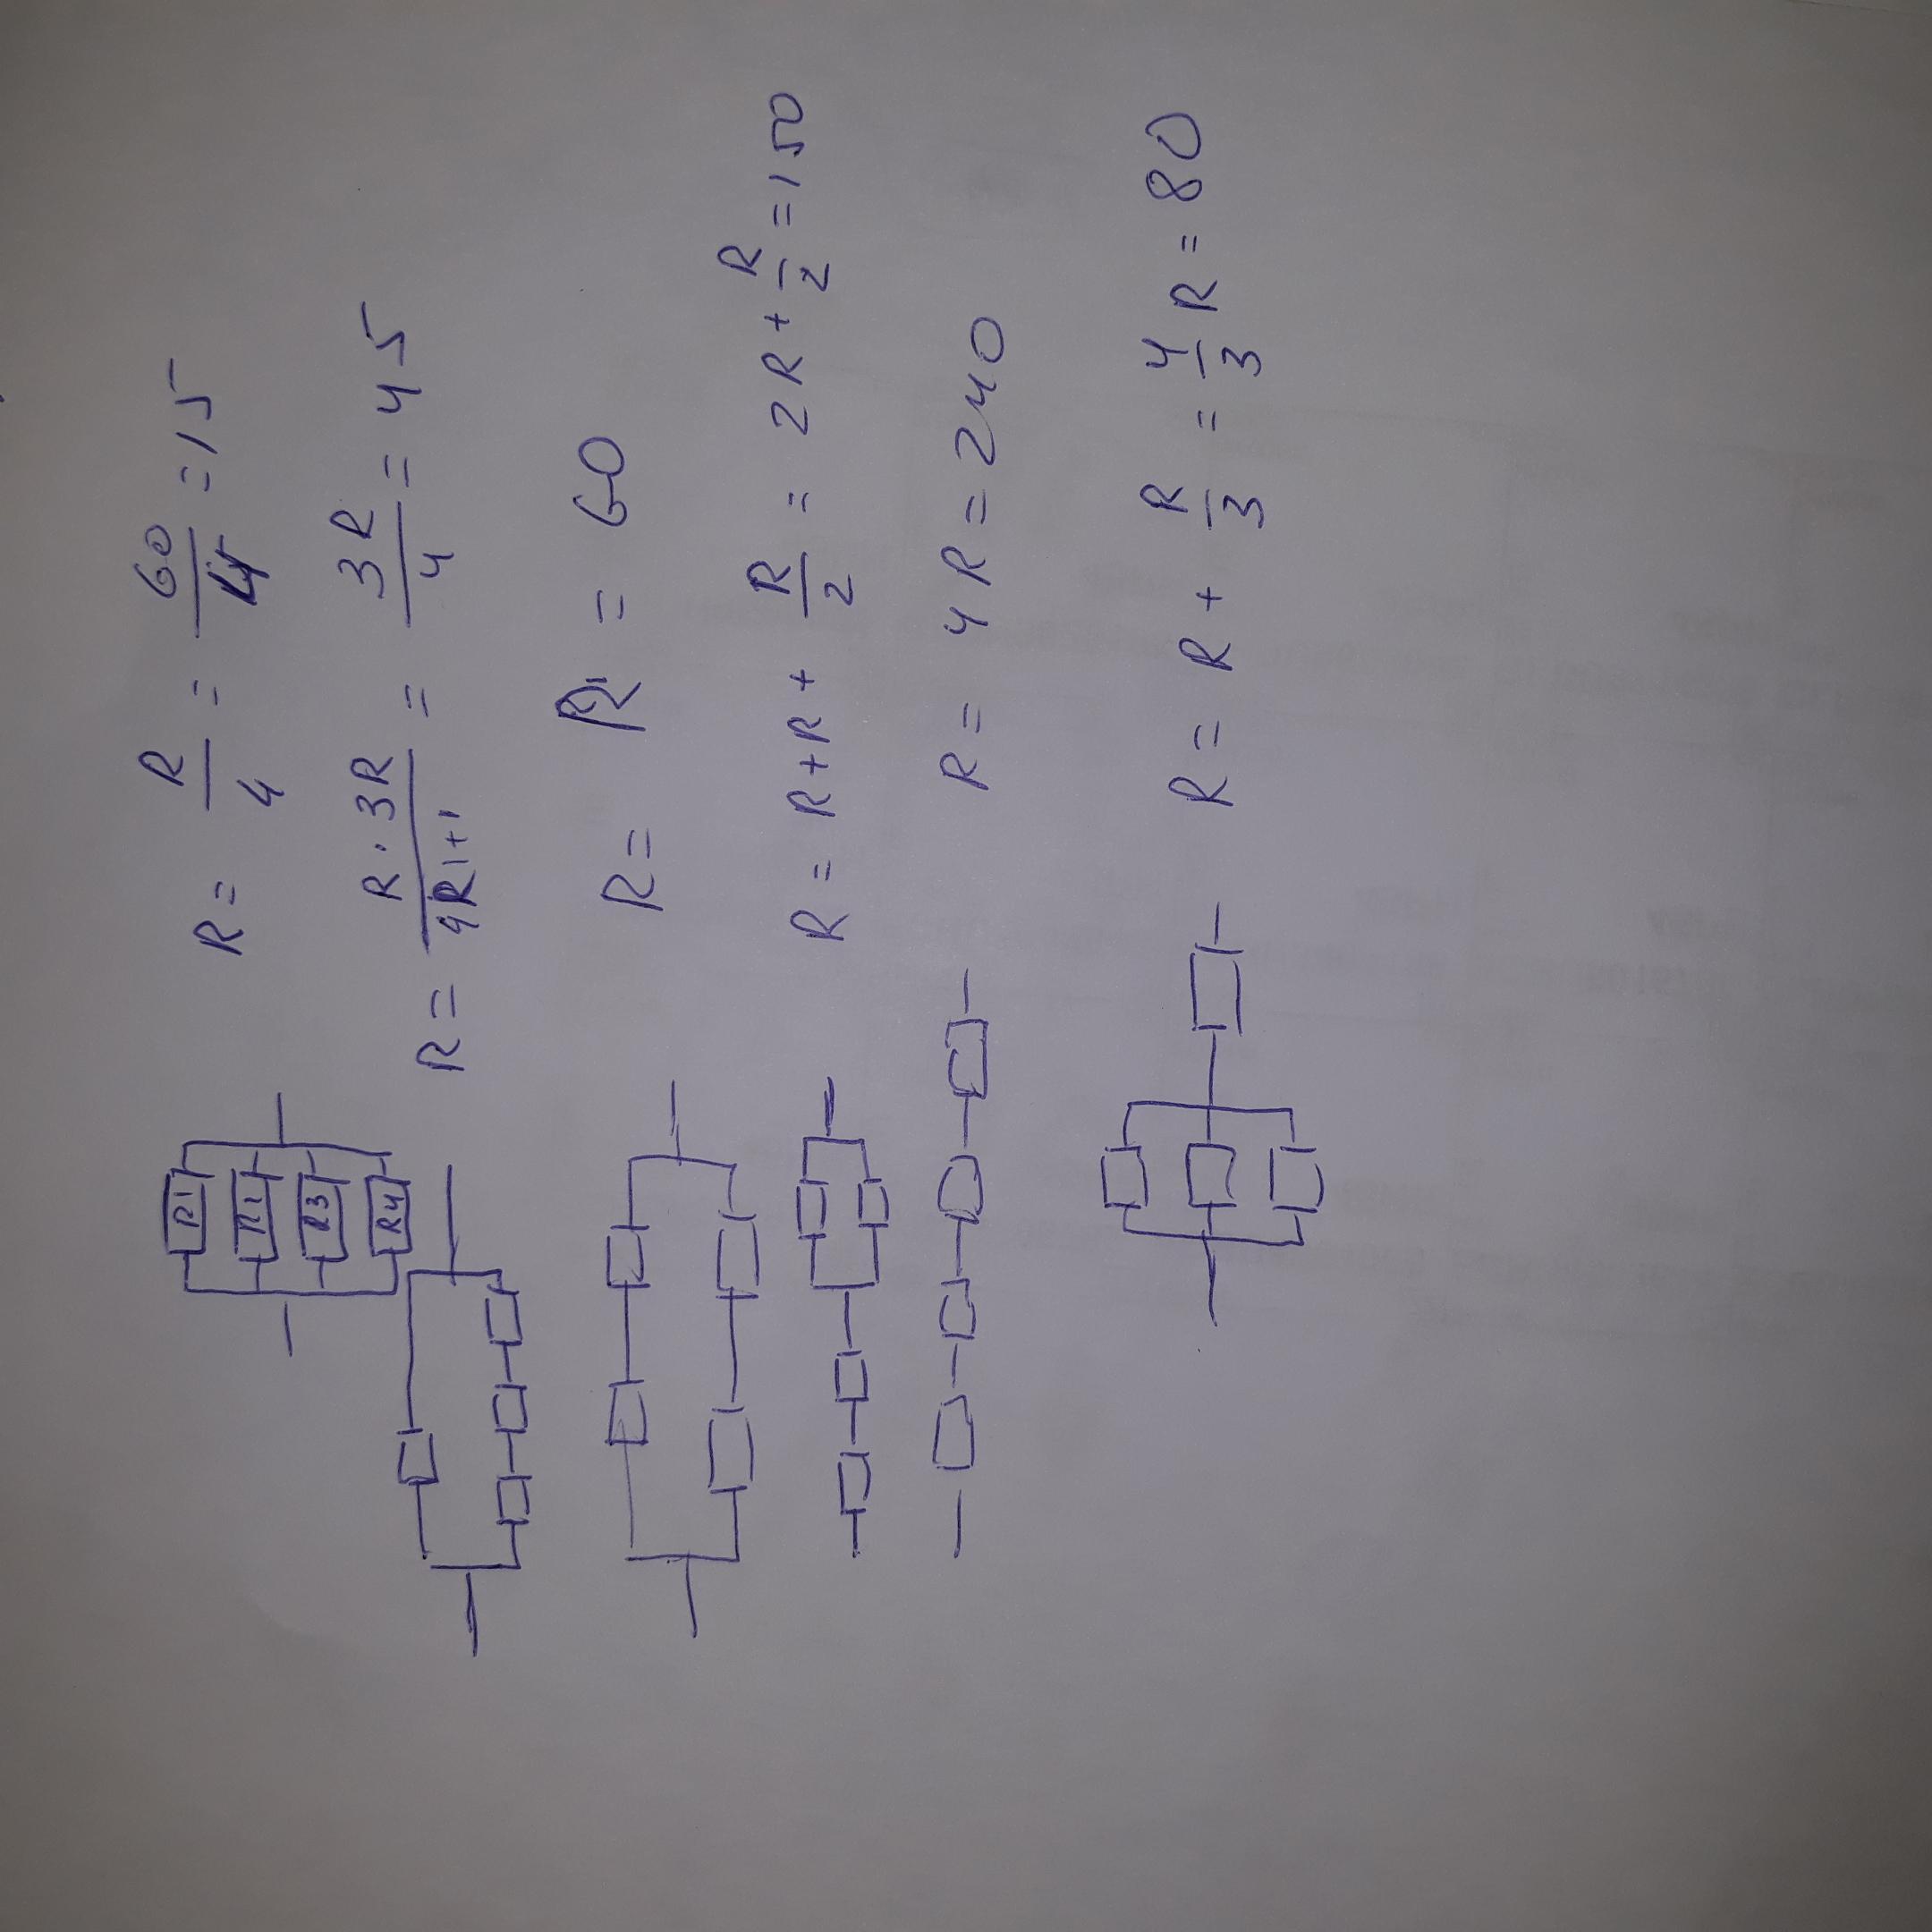 R1
R2
R3
R4
R = R/4 = 60/4 = 15
R = R · 3R/4R = 3R/4 = 45
R = R = 60
R = R + R + R/2 = 2R + R/2 = 150
R = 4R = 240
R = R + R/3 = 4/3 R = 80